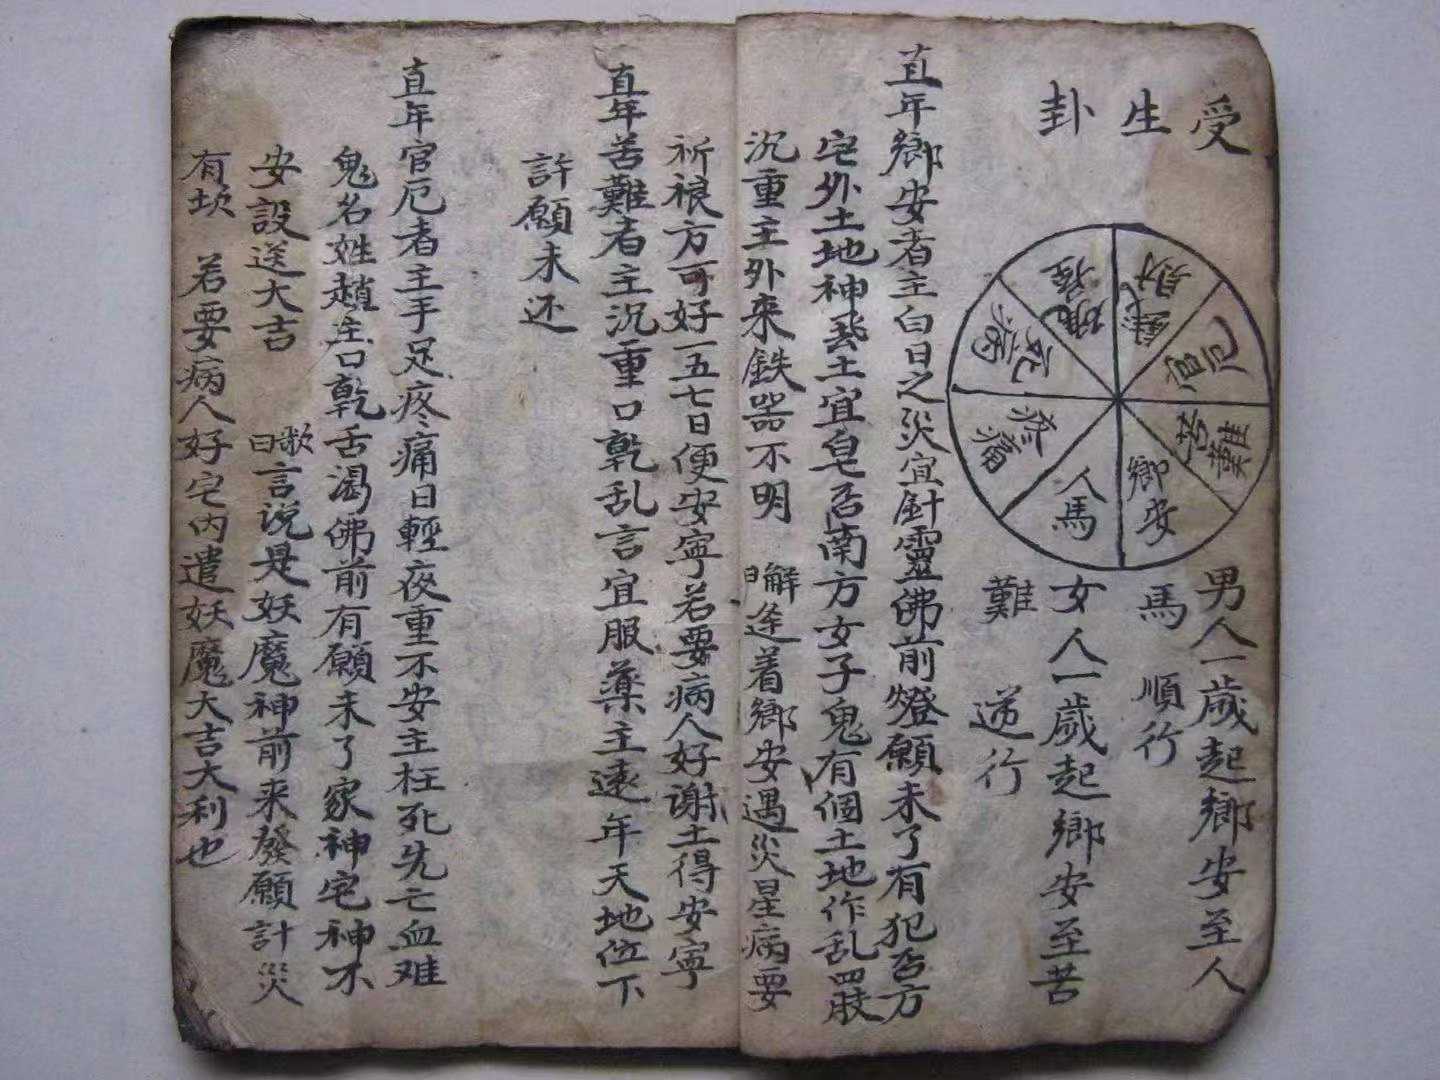 受生卦
鄉安
人馬
疼痛
死病
財
官厄
苦難
男人一歲起鄉安至人
馬　順行
女人一歲起鄉安至苦
難　逆行
直年鄉安者主白日之災宜針靈佛前燈願未了有犯西方
宅外土地神動土宜皂西南方女子鬼有個土地作乱四肢
沉重主外來鉄器不明　解曰逢着鄉安遇災星病要
祈禳方可好一五七日便安寧若要病人好謝土得安寧
直年苦難者主沉重口乾乱言宜服藥主遠年天地位下
許願未还
直年官厄者主手足疼痛日輕夜重不安主枉死先亡血难
鬼名姓趙主口乾舌渴佛前有願未了家神宅神不
安設送大吉　歌曰言说是妖魔神前来發願計災
有坎　若要病人好宅内遣妖魔大吉大利也